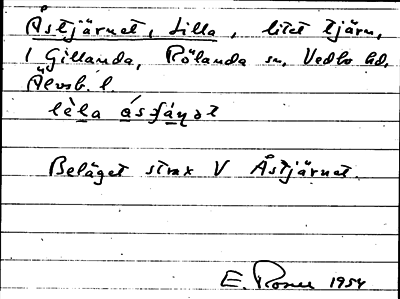 Åstjärnet, Lilla, litet tjärn,
I Gillanda, Rölanda sn, Vedbo hd,
Älvsb. l.
Beläget strax V Åstjärnet.
E. Rosell 1954